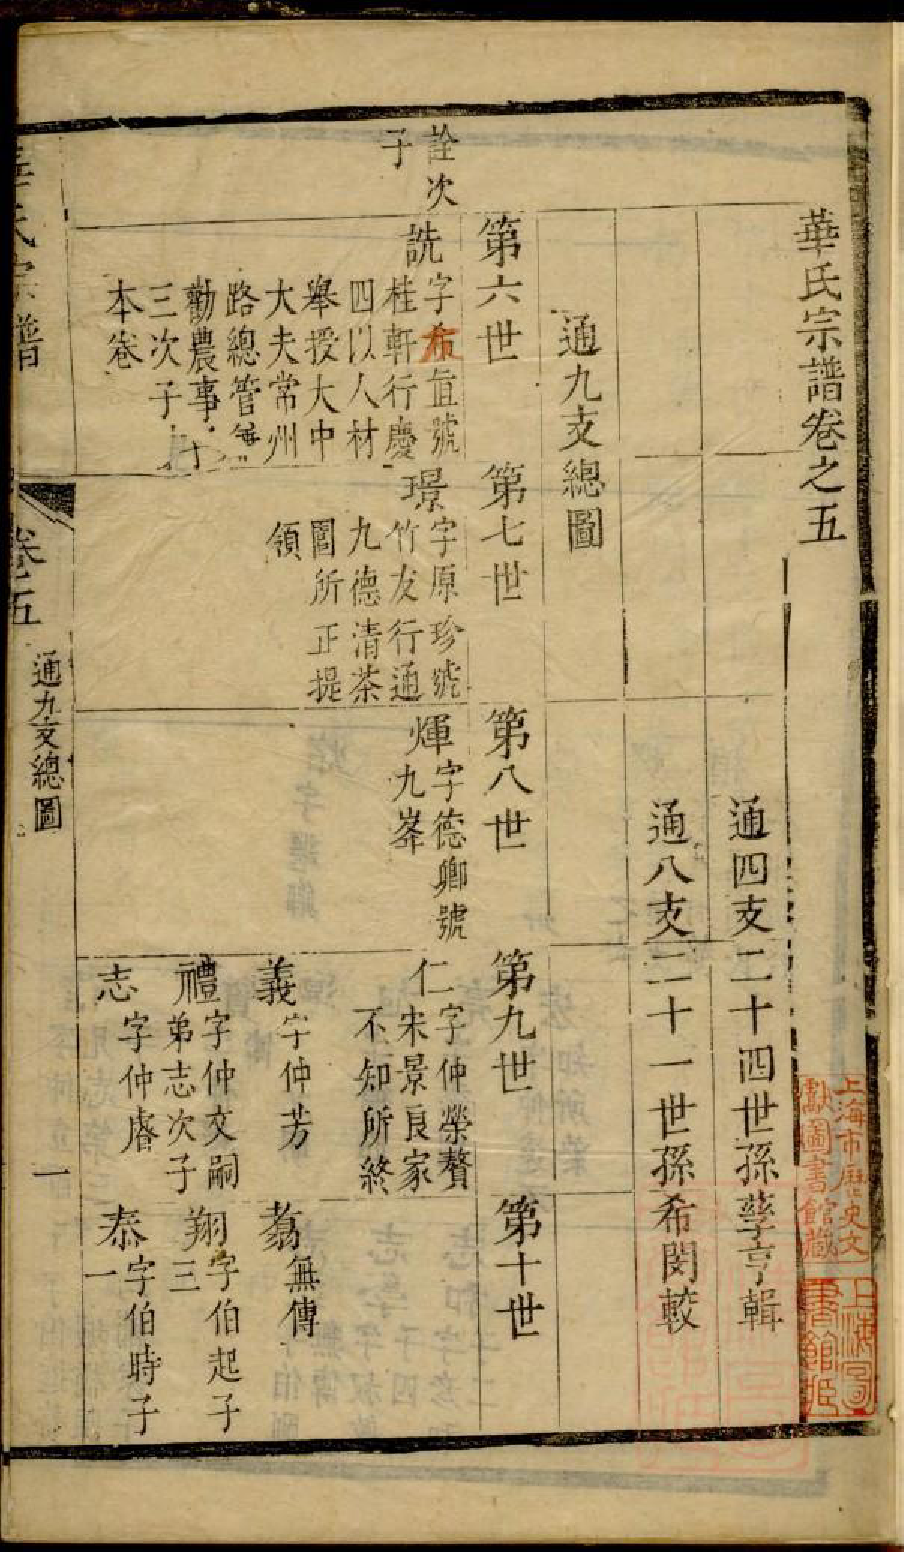 華氏宗譜卷之五
通四支二十四世孫孳亨輯
通八支二十一世孫希閔較
通九支總圖
第六世
第七世
第八世
第九世
第十世
詮次
子
詵
字希直號
桂軒行慶
四以人材
舉授大中
大夫常州
路總管兼
勸農事
三次子
本卷
璟
字原珍號
竹友行通
九德清茶
園所正提
領
煇
字德卿號
九峯
仁
字仲榮贅
宋景良家
不知所終
義
字仲芳
禮
字仲文嗣
弟志次子
志
字仲睿
翥
無傳
翔
字伯起子
三
泰
字伯時子
一
華氏宗譜
卷五
通九支總圖
一
上海市歷史文
獻圖書館藏